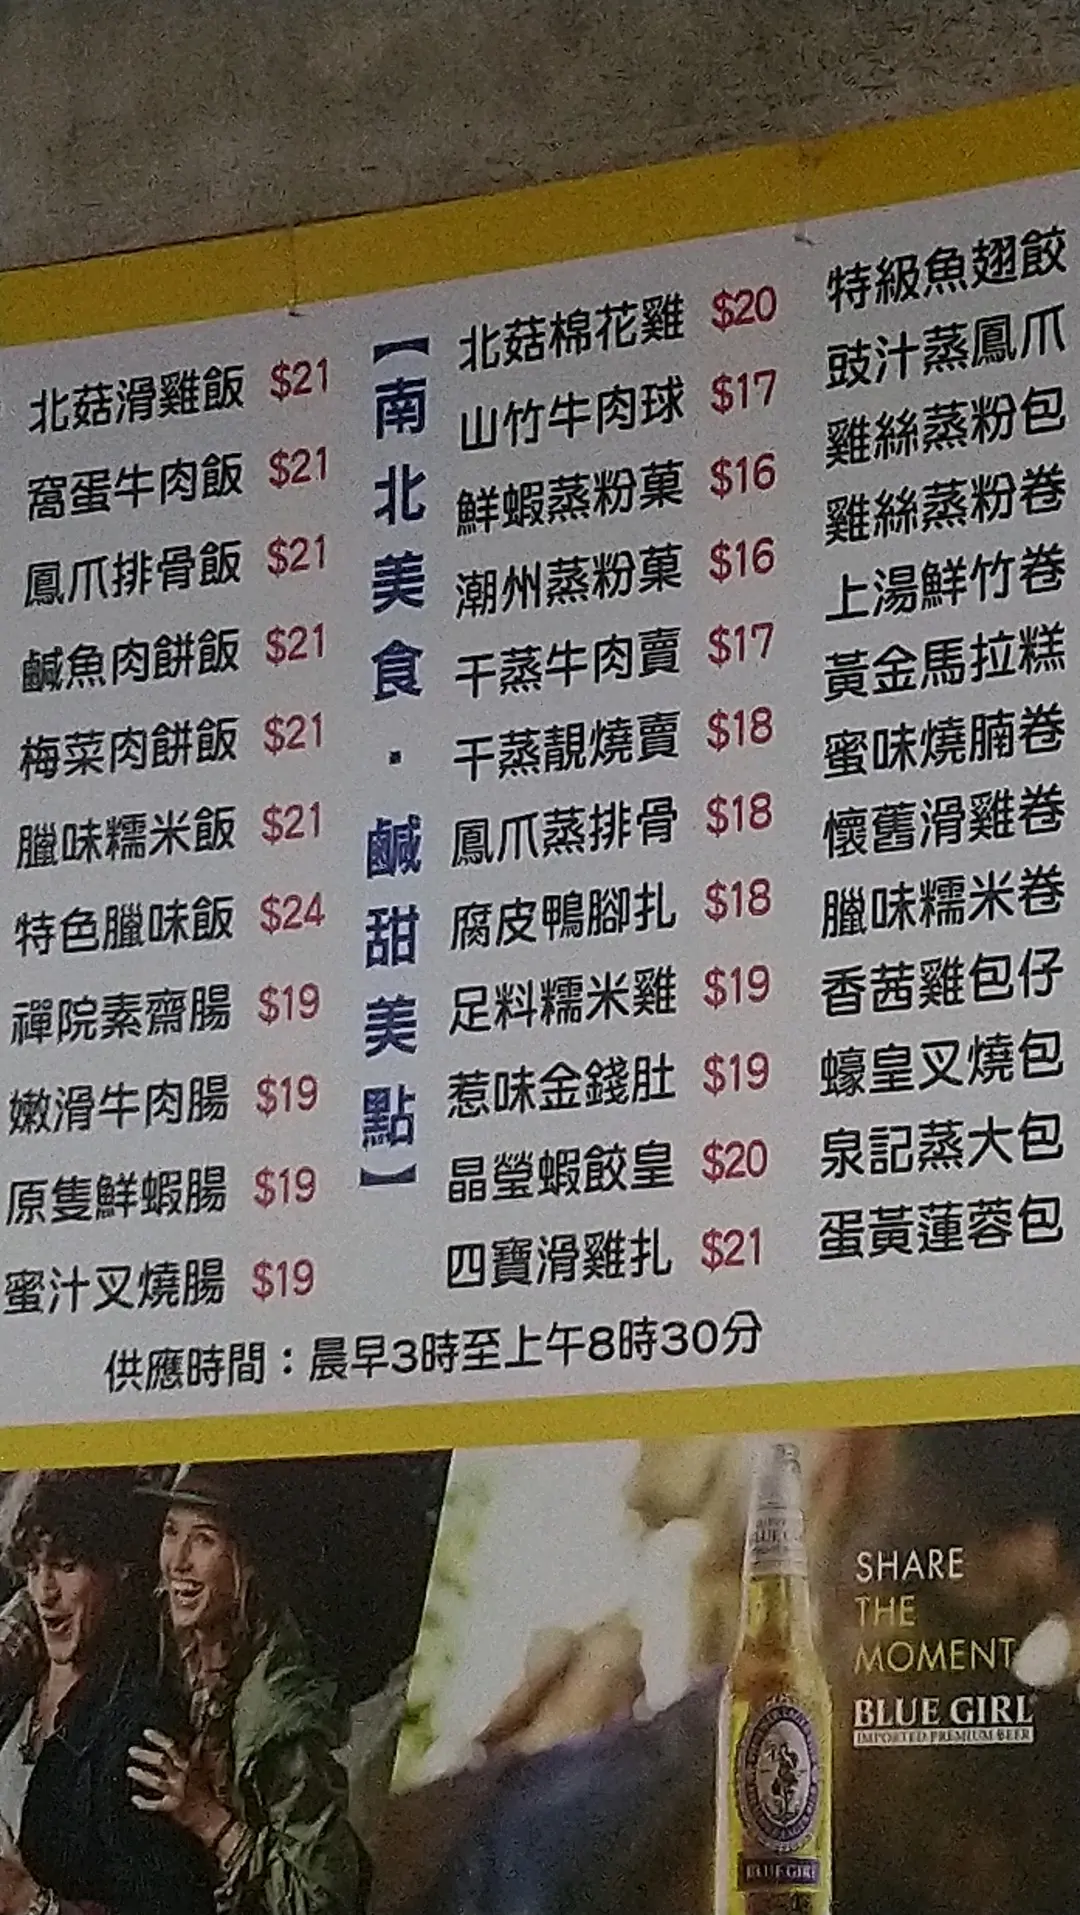 北菇滑雞飯 $21
窩蛋牛肉飯 $21
鳳爪排骨飯 $21
鹹魚肉餅飯 $21
梅菜肉餅飯 $21
臘味糯米飯 $21
特色臘味飯 $24
禪院素齋腸 $19
嫩滑牛肉腸 $19
原隻鮮蝦腸 $19
蜜汁叉燒腸 $19
【南北美食·鹹甜美點】
北菇棉花雞 $20
山竹牛肉球 $17
鮮蝦蒸粉菓 $16
潮州蒸粉菓 $16
干蒸牛肉賣 $17
干蒸靚燒賣 $18
鳳爪蒸排骨 $18
腐皮鴨腳扎 $18
足料糯米雞 $19
惹味金錢肚 $19
晶瑩蝦餃皇 $20
四寶滑雞扎 $21
特級魚翅餃
豉汁蒸鳳爪
雞絲蒸粉包
雞絲蒸粉卷
上湯鮮竹卷
黃金馬拉糕
蜜味燒腩卷
懷舊滑雞卷
臘味糯米卷
香茜雞包仔
蠔皇叉燒包
泉記蒸大包
蛋黃蓮蓉包
供應時間：晨早3時至上午8時30分
SHARE
THE
MOMENT
BLUE GIRL
IMPORTED PREMIUM BEER
BLUE GIRL